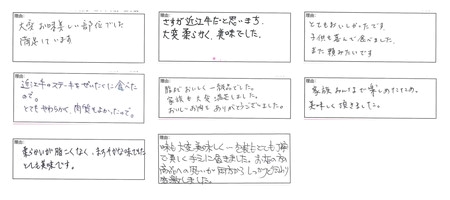 理由:
大変お味美しい部位でした
満足しています
理由:
さすが近江牛だと思いまち。
大変柔らかく、美味でした。
理由:
とてもおいしかったです。
子供も喜んで食べました。
また頼みたいです
理由:
近江牛のステーキをぜいたくに食べた
ので。
とてもやわらかく、肉質もよかったので。
理由:
脂がおいしく一級品でした。
家族も大変満足しました。
おいしいお肉をありがとうございました。
理由:
家族みんなで楽しめたため。
美味しく頂きました。
理由:
柔らかいが脂こくなく、まろやかな味でした
とても美味です。
理由:
味も大変美味しく、包装もとても丁寧
で美しくキレイに届きました。お店の方の
商品への思いが
感激しました。